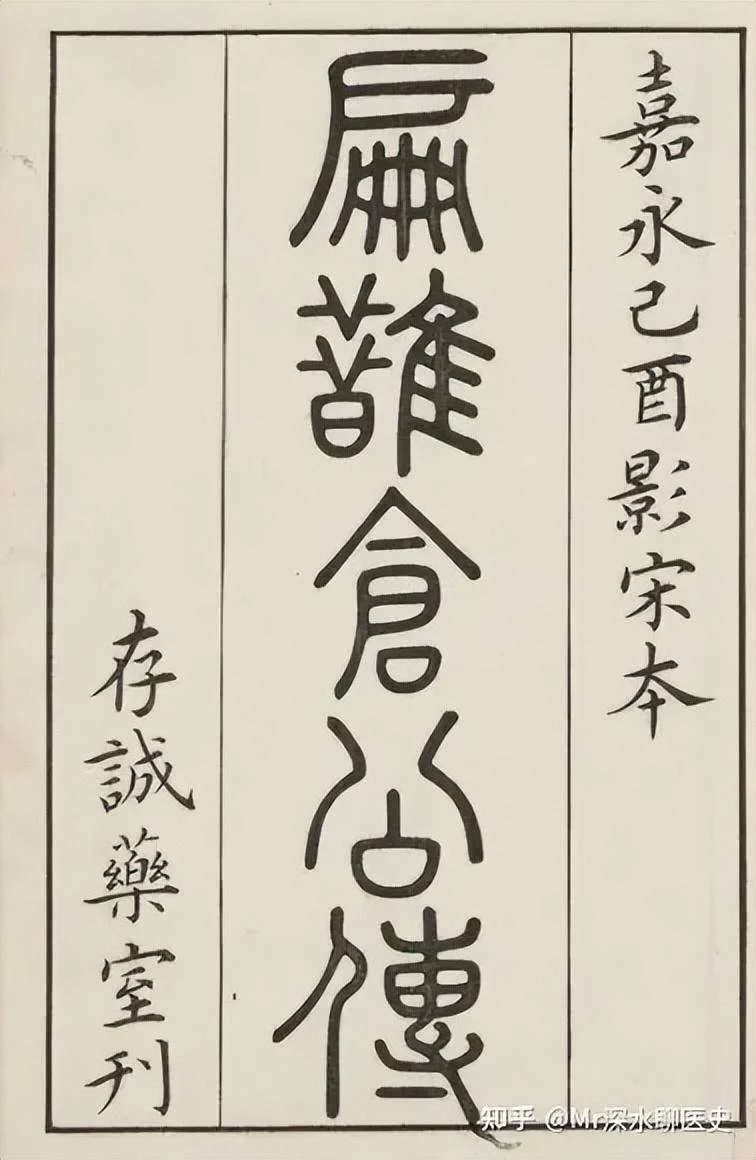 嘉永己酉影宋本
扁鵲倉公傳
存誠藥室刊
知乎 @Mr深水聊医史